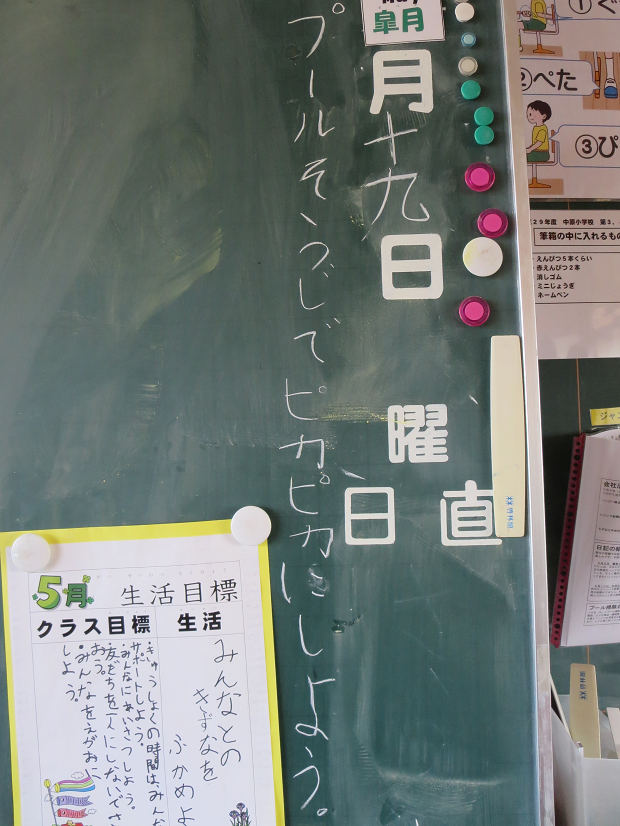 皐月
月十九日
曜
日直
プールそうじでピカピカにしよう。
5月 生活目標
生活
みんなとの
きずなを
ふかめよ
クラス目標
・きゅうしょくの時間は、みんな
サポートしよう。
・みんなにあいさつしよう。
・友だちを一人にしないでさ
おう。
・みんなをえがおに
しよう。
①ぐ
②ぺた
③ぴ
29年度 中原小学校 第3.
筆箱の中に入れるもの
えんぴつ5本くらい
赤えんぴつ2本
消しゴム
ミニじょうぎ
ネームペン
ジャン
日記の
プール掃除